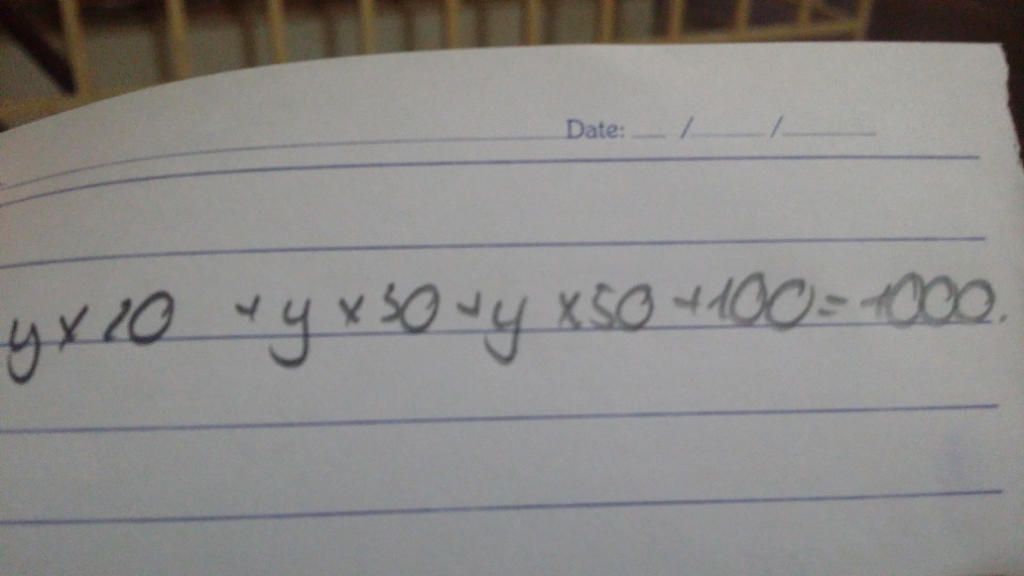 Date: __ / ____ / ____
y x 20 + y x 30 + y x 50 + 100 = 1000.